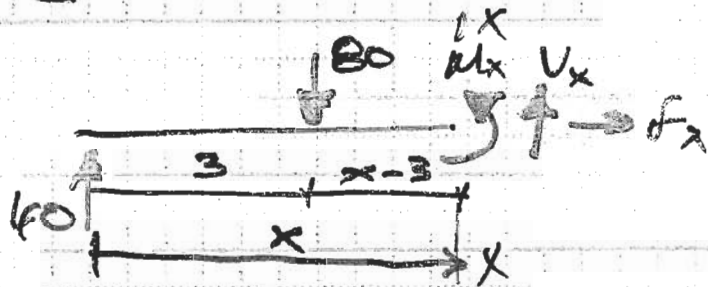 80 Mx Vx
fx
3 x-3
40
x
x